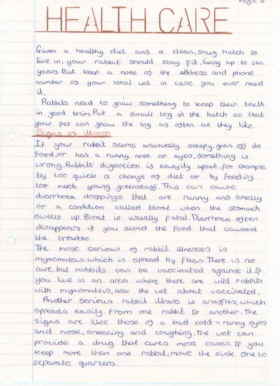 HEALTH CARE
Given a healthy diet and a clean, snug hutch to
live in your rabbit should stay fit, living up to six
years. But keep a note of the address and phone
number of your local vet in case you ever need
it.
Rabbits need to gnaw something to keep their teeth
in good trim. Put a small log in the hutch so that
your pet can gnaw the log as often as they like.
Signs of illness
If your rabbit seems unusually sleepy, goes off its
food, or has a runny nose or eyes, something is
wrong. Rabbits digestion is easily upset, for example
by too quick a change of diet or by feeding
too much young greenstuff. This can cause
diarrhoea droppings that are runny and smelly
or a condition called bloat when the stomach
swells up. Bloat is usually fatal. Diarrhoea often
disappears if you stop the food that caused
the trouble.
The most serious of rabbit illnesses is
myxomatosis, which is spread by fleas. There is no
cure but rabbits can be vaccinated against it. If
you live in an area where there are wild rabbits
with myxomatosis, have the vet vaccinated.
Another serious rabbit illness is snuffles, which
spreads easily from one rabbit to another. The
signs are like those of a bad cold - runny eyes
and nose, sneezing and coughing. The vet can
provide a drug that cures most cases. If you
keep more than one rabbit, move the sick one to
separate quarters.